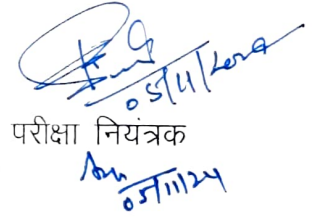 05/11/2024
परीक्षा नियंत्रक
05/11/24